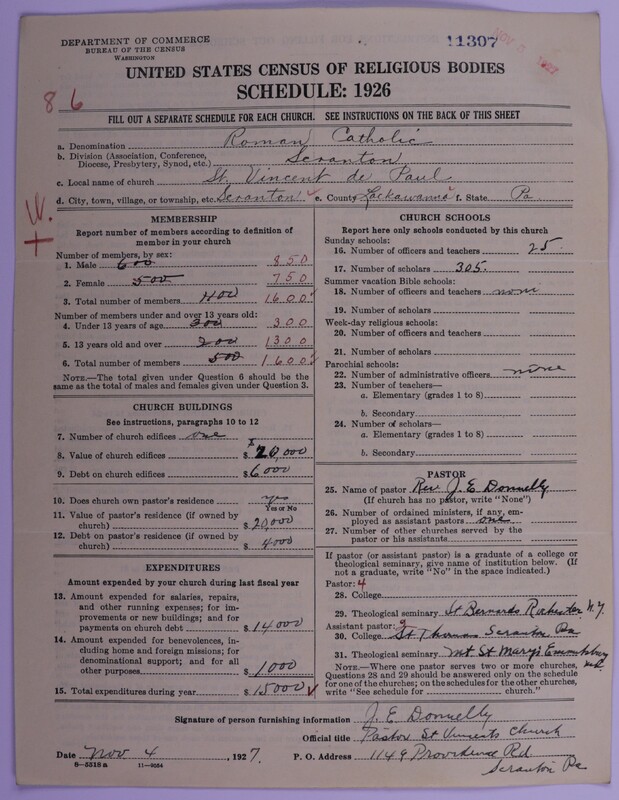 DEPARTMENT OF COMMERCE
BUREAU OF THE CENSUS
WASHINGTON
11307
UNITED STATES CENSUS OF RELIGIOUS BODIES
SCHEDULE: 1926
8 6
FILL OUT A SEPARATE SCHEDULE FOR EACH CHURCH. SEE INSTRUCTIONS ON THE BACK OF THIS SHEET
a. Denomination Roman Catholic
b. Division (Association, Conference, Diocese, Presbytery, Synod, etc.) Scranton
c. Local name of church St. Vincent de Paul
d. City, town, village, or township, etc. Scranton e. County Lackawanna f. State Pa
W.
+
MEMBERSHIP
Report number of members according to definition of
member in your church
Number of members, by sex:
1. Male 600 850
2. Female 500 750
3. Total number of members 1600
Number of members under and over 13 years old:
4. Under 13 years of age 300 300
5. 13 years old and over 200 1300
6. Total number of members 500 1600
NOTE.—The total given under Question 6 should be the
same as the total of males and females given under Question 3.
CHURCH BUILDINGS
See instructions, paragraphs 10 to 12
7. Number of church edifices one
8. Value of church edifices $ 20,000
9. Debt on church edifices $ 6000
10. Does church own pastor's residence yes
Yes or No
11. Value of pastor's residence (if owned by
church) $ 20,000
12. Debt on pastor's residence (if owned by
church) $ 4000
EXPENDITURES
Amount expended by your church during last fiscal year
13. Amount expended for salaries, repairs,
and other running expenses; for im-
provements or new buildings; and for
payments on church debt $ 14000
14. Amount expended for benevolences, in-
cluding home and foreign missions; for
denominational support; and for all
other purposes $ 1000
15. Total expenditures during year $ 15000
CHURCH SCHOOLS
Report here only schools conducted by this church
Sunday schools:
16. Number of officers and teachers 25.
17. Number of scholars 305.
Summer vacation Bible schools:
18. Number of officers and teachers none
19. Number of scholars
Week-day religious schools:
20. Number of officers and teachers
21. Number of scholars
Parochial schools:
22. Number of administrative officers none
23. Number of teachers—
a. Elementary (grades 1 to 8)
b. Secondary
24. Number of scholars—
a. Elementary (grades 1 to 8)
b. Secondary
PASTOR
25. Name of pastor Rev. J. E. Donnelly
(If church has no pastor, write "None")
26. Number of ordained ministers, if any, em-
ployed as assistant pastors one
27. Number of other churches served by the
pastor or his assistants
If pastor (or assistant pastor) is a graduate of a college or
theological seminary, give name of institution below. (If
not a graduate, write "No" in the space indicated.)
Pastor: 4
28. College
29. Theological seminary St Bernards Rochester N.Y.
Assistant pastor: 9
30. College St Thomas Scranton Pa
31. Theological seminary Mt St Marys Emmitsburg Md.
NOTE.—Where one pastor serves two or more churches,
Questions 28 and 29 should be answered only on the schedule
for one of the churches; on the schedules for the other churches,
write "See schedule for church."
Signature of person furnishing information J. E. Donnelly
Official title Pastor St Vincents Church
Date Nov 4, 1927. P. O. Address 1149 Providence Rd
Scranton Pa
8—5318a 11—9554